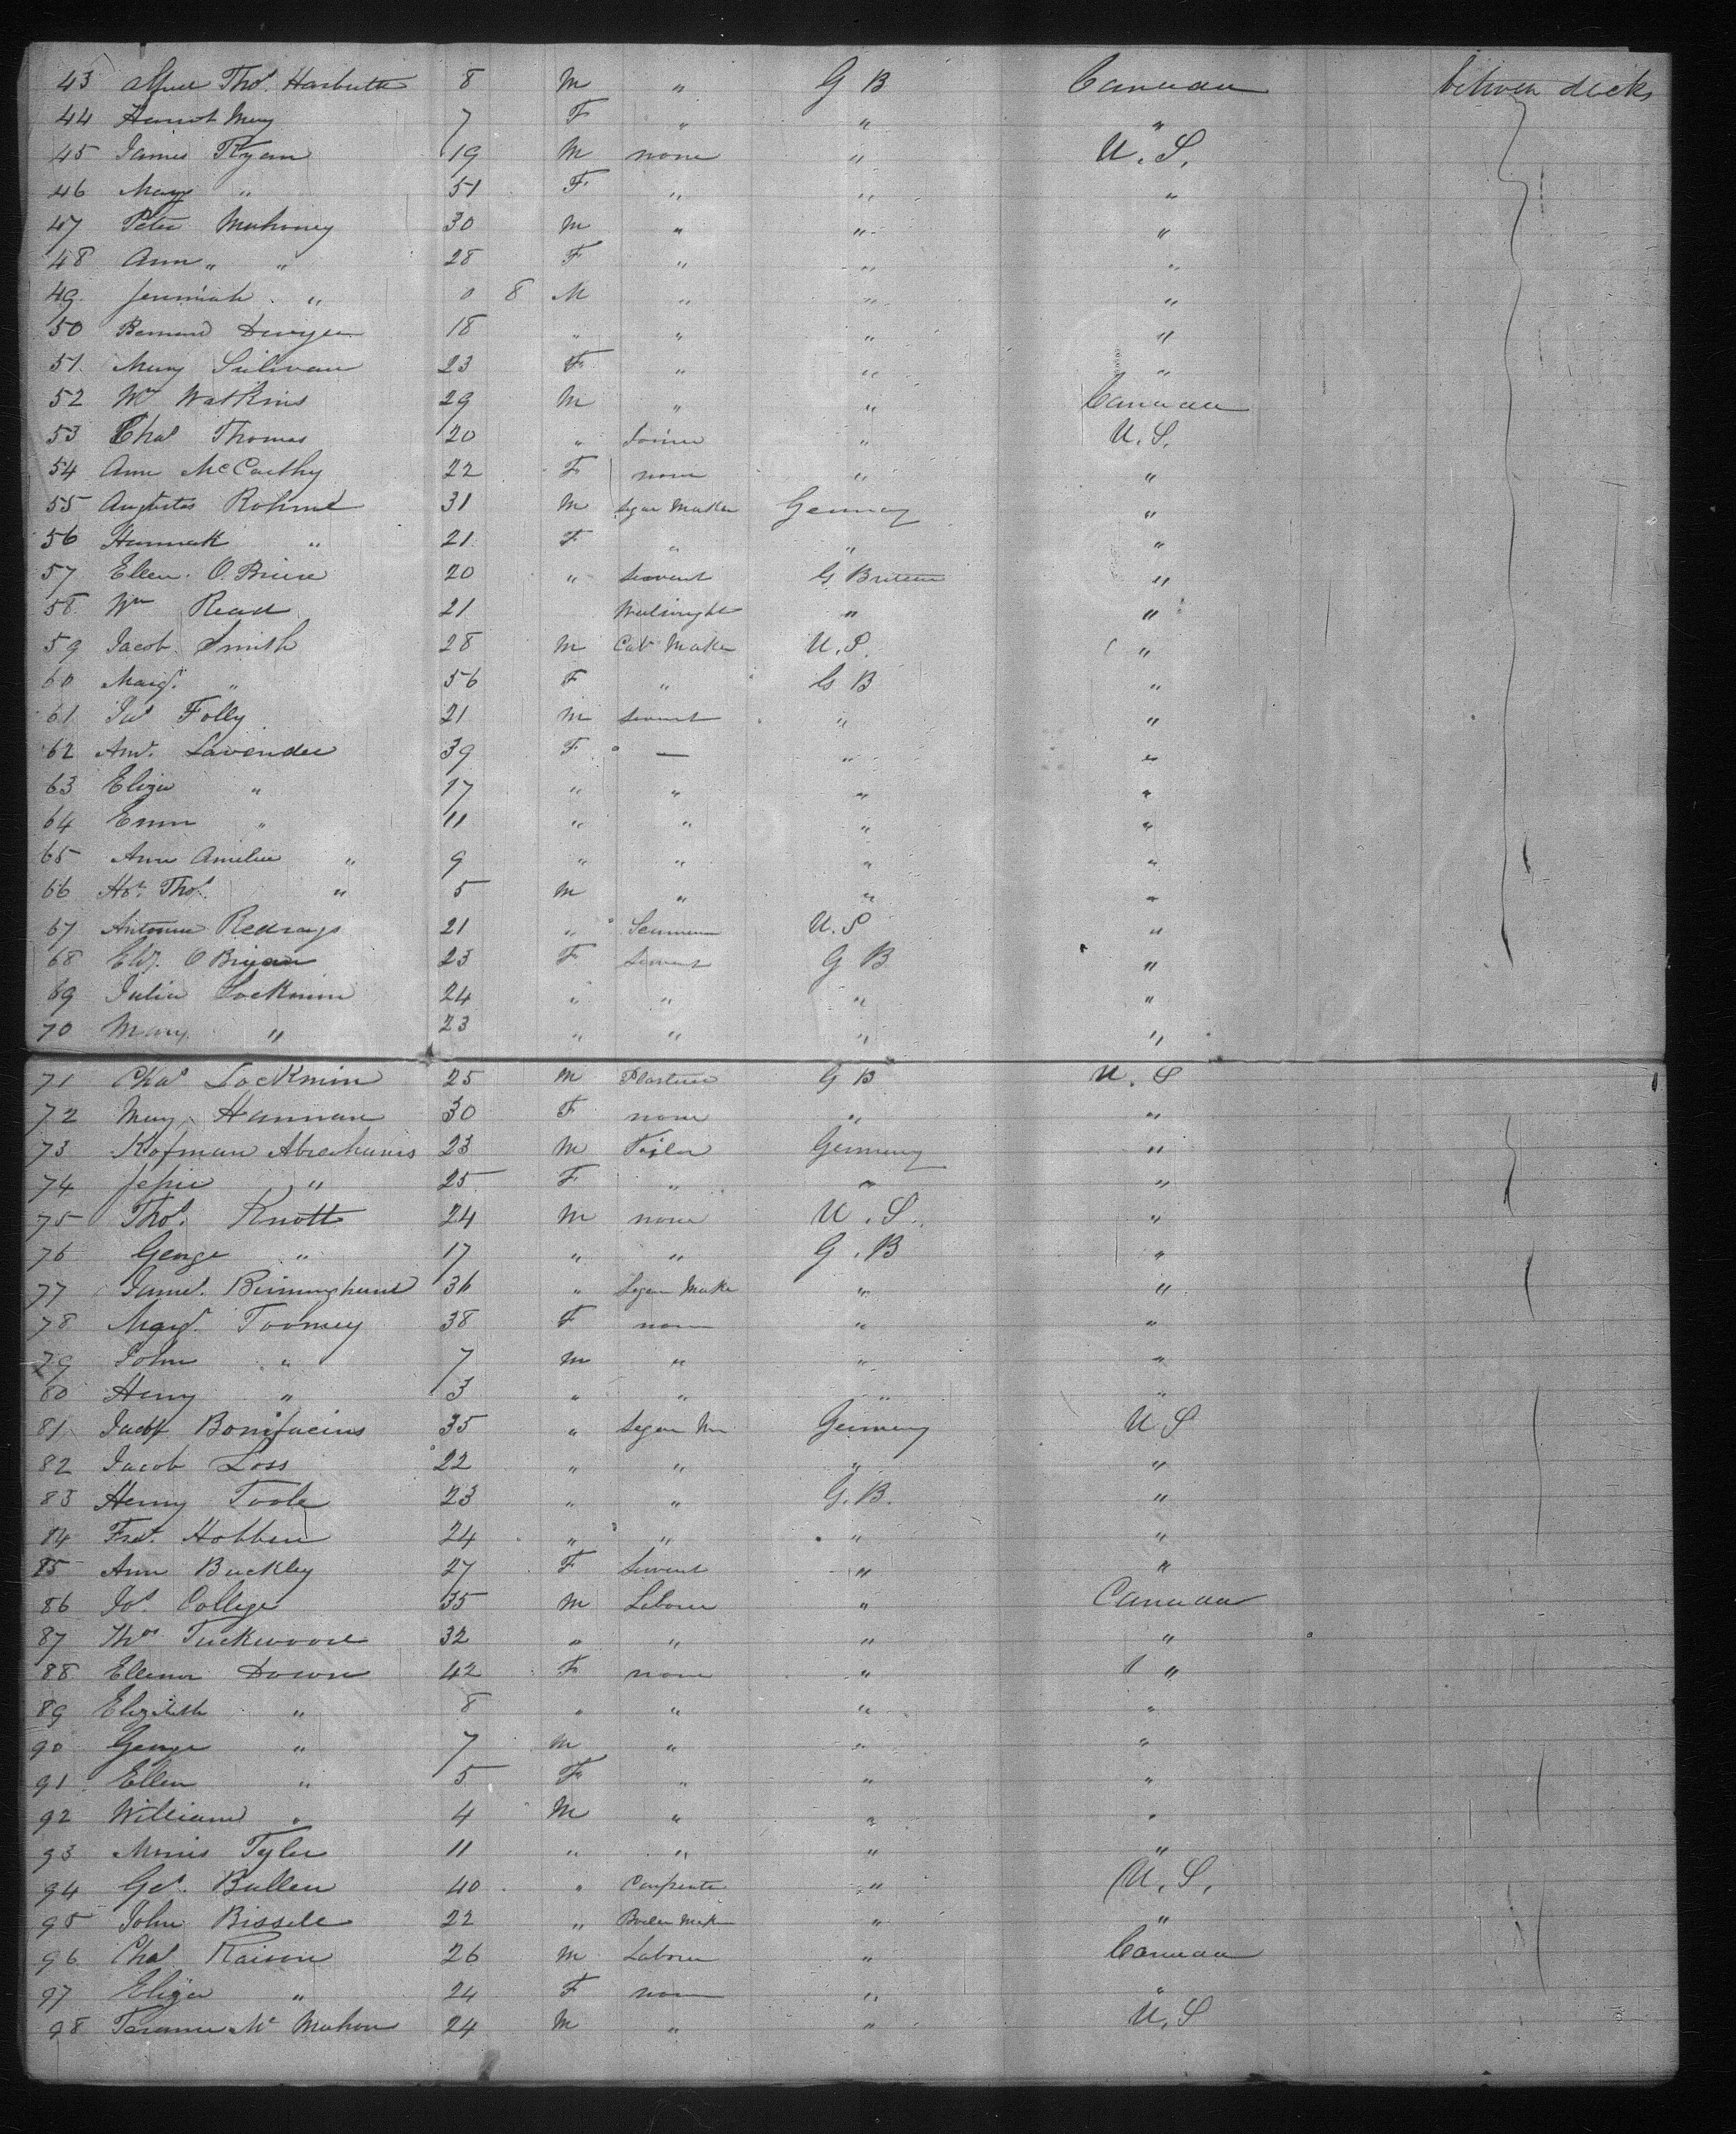 43 Alfred Thos. Harbutte 8 M " G B Canada between decks
44 Harriot Mary 7 F " " "
45 James Ryan 19 M none " U. S.
46 Mary " 51 F " " "
47 Peter Mahoney 30 M " " "
48 Ann " " 28 F " " "
49 Jeremiah " 0 8 M " " "
50 Bernard Dwyer 18 " " " "
51 Mary Sulivan 23 F " " "
52 Wm Watkins 29 M " " Canada
53 Chas Thomas 20 " Joiner " U. S.
54 Ann McCarthy 22 F none " "
55 Augustus Rohme 31 M Segar Maker Germany "
56 Hannah " 21 F " " "
57 Ellen O. Briere 20 " Servent G Britain "
58 Wm Read 21 " "
59 Jacob Smith 28 M Cab Maker U. S. "
60 Margt. " 56 F " G B "
61 Jas Folly 21 M Servent " "
62 Ann. Lavender 39 F — " "
63 Eliza " 17 " " " "
64 Emm " 11 " " " "
65 Ann Amelia " 9 " " " "
66 Hy. Thos. " 5 M " " "
67 Antonio 21 " Seaman U. S "
68 Eliz. O Bryan 23 F Servent G B "
69 Julia Lockmin 24 " " " "
70 Mary " 23 " " " "
71 Chas Lockmin 25 M Plasterer G B U. S
72 Mary Hannan 30 F none " "
73 Kofman Abrahams 23 M Tailor Germany "
74 Jessie " 25 F " " "
75 Thos. Knott 24 M none U. S. "
76 George " 17 " " G. B "
77 James. Birmingham 36 " Segar Make " "
78 Margt. Toomey 38 F none " "
79 John " 7 M " " "
80 Henry " 3 " " " "
81 Jacob Bonifacius 35 " Segar M Germany U S
82 Jacob Loss 22 " " " "
83 Henry Toole 23 " " G. B. "
84 Fred. Hobben 24 " " " "
85 Ann Buckley 27 F Servent " "
86 Jos. College 35 M Laborer " Canada
87 Thos Tuckwood 32 " " " "
88 Eleanor Down 42 F none " "
89 Elizabeth " 8 " " " "
90 George " 7 M " " "
91 Ellen " 5 F " " "
92 William " 4 M " " "
93 Tyler 11 " " " "
94 Geo. Bullen 40 " Carpenter " U. S.
95 John Bissele 22 " Boiler Mak " "
96 Chas Raison 26 M Laborer " Canada
97 Eliza " 24 F none " "
98 Mc Mahon 24 M " " U. S